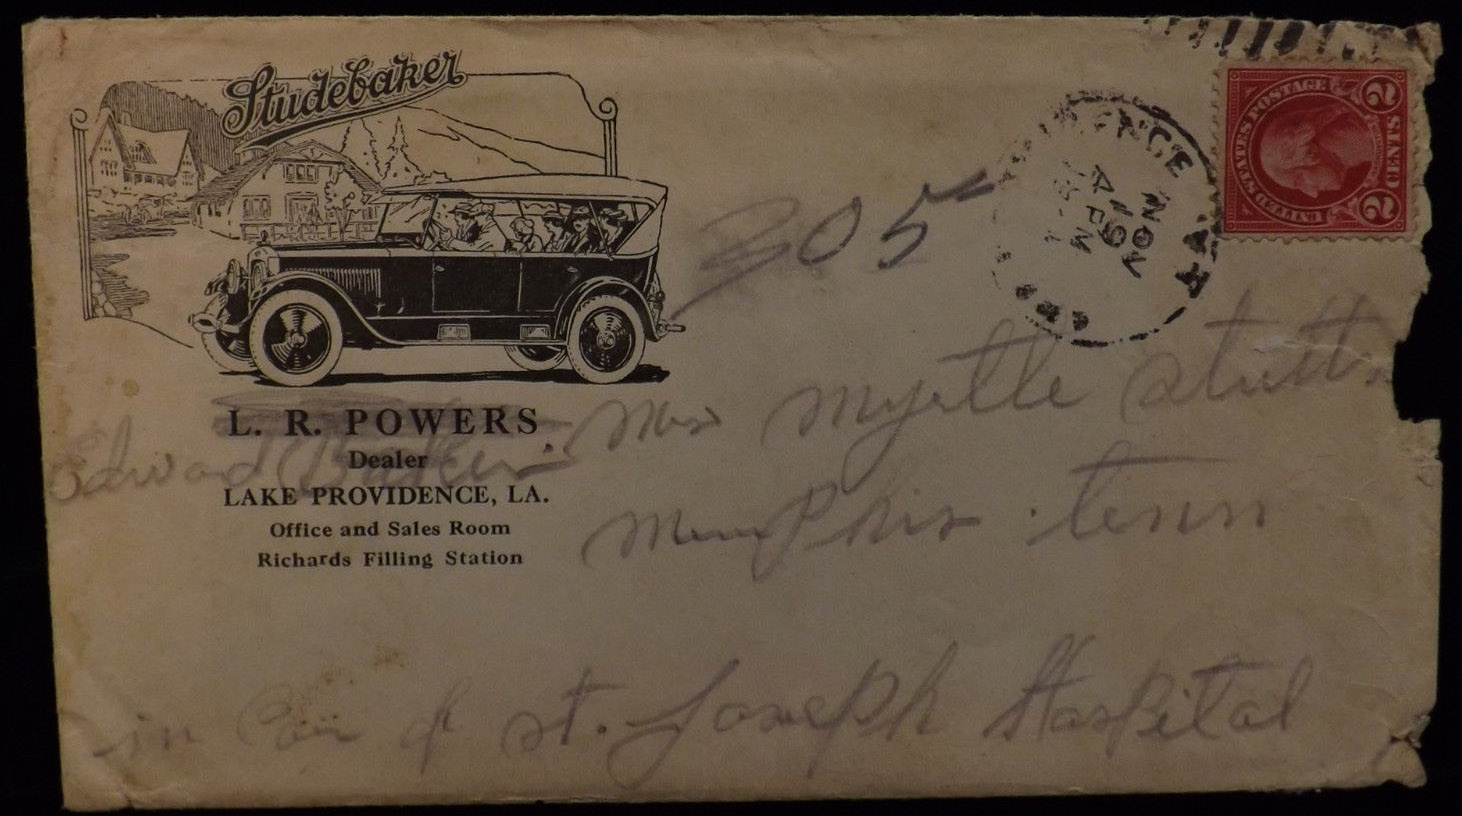 Studebaker
L. R. POWERS
Dealer
LAKE PROVIDENCE, LA.
Office and Sales Room
Richards Filling Station
Edward
305
ENCE
NOV
19
4 PM
UNITED STATES POSTAGE
2 CENTS 2
Mrs Myrtle
Memphis. tenn
in Care of St. Joseph Hospital